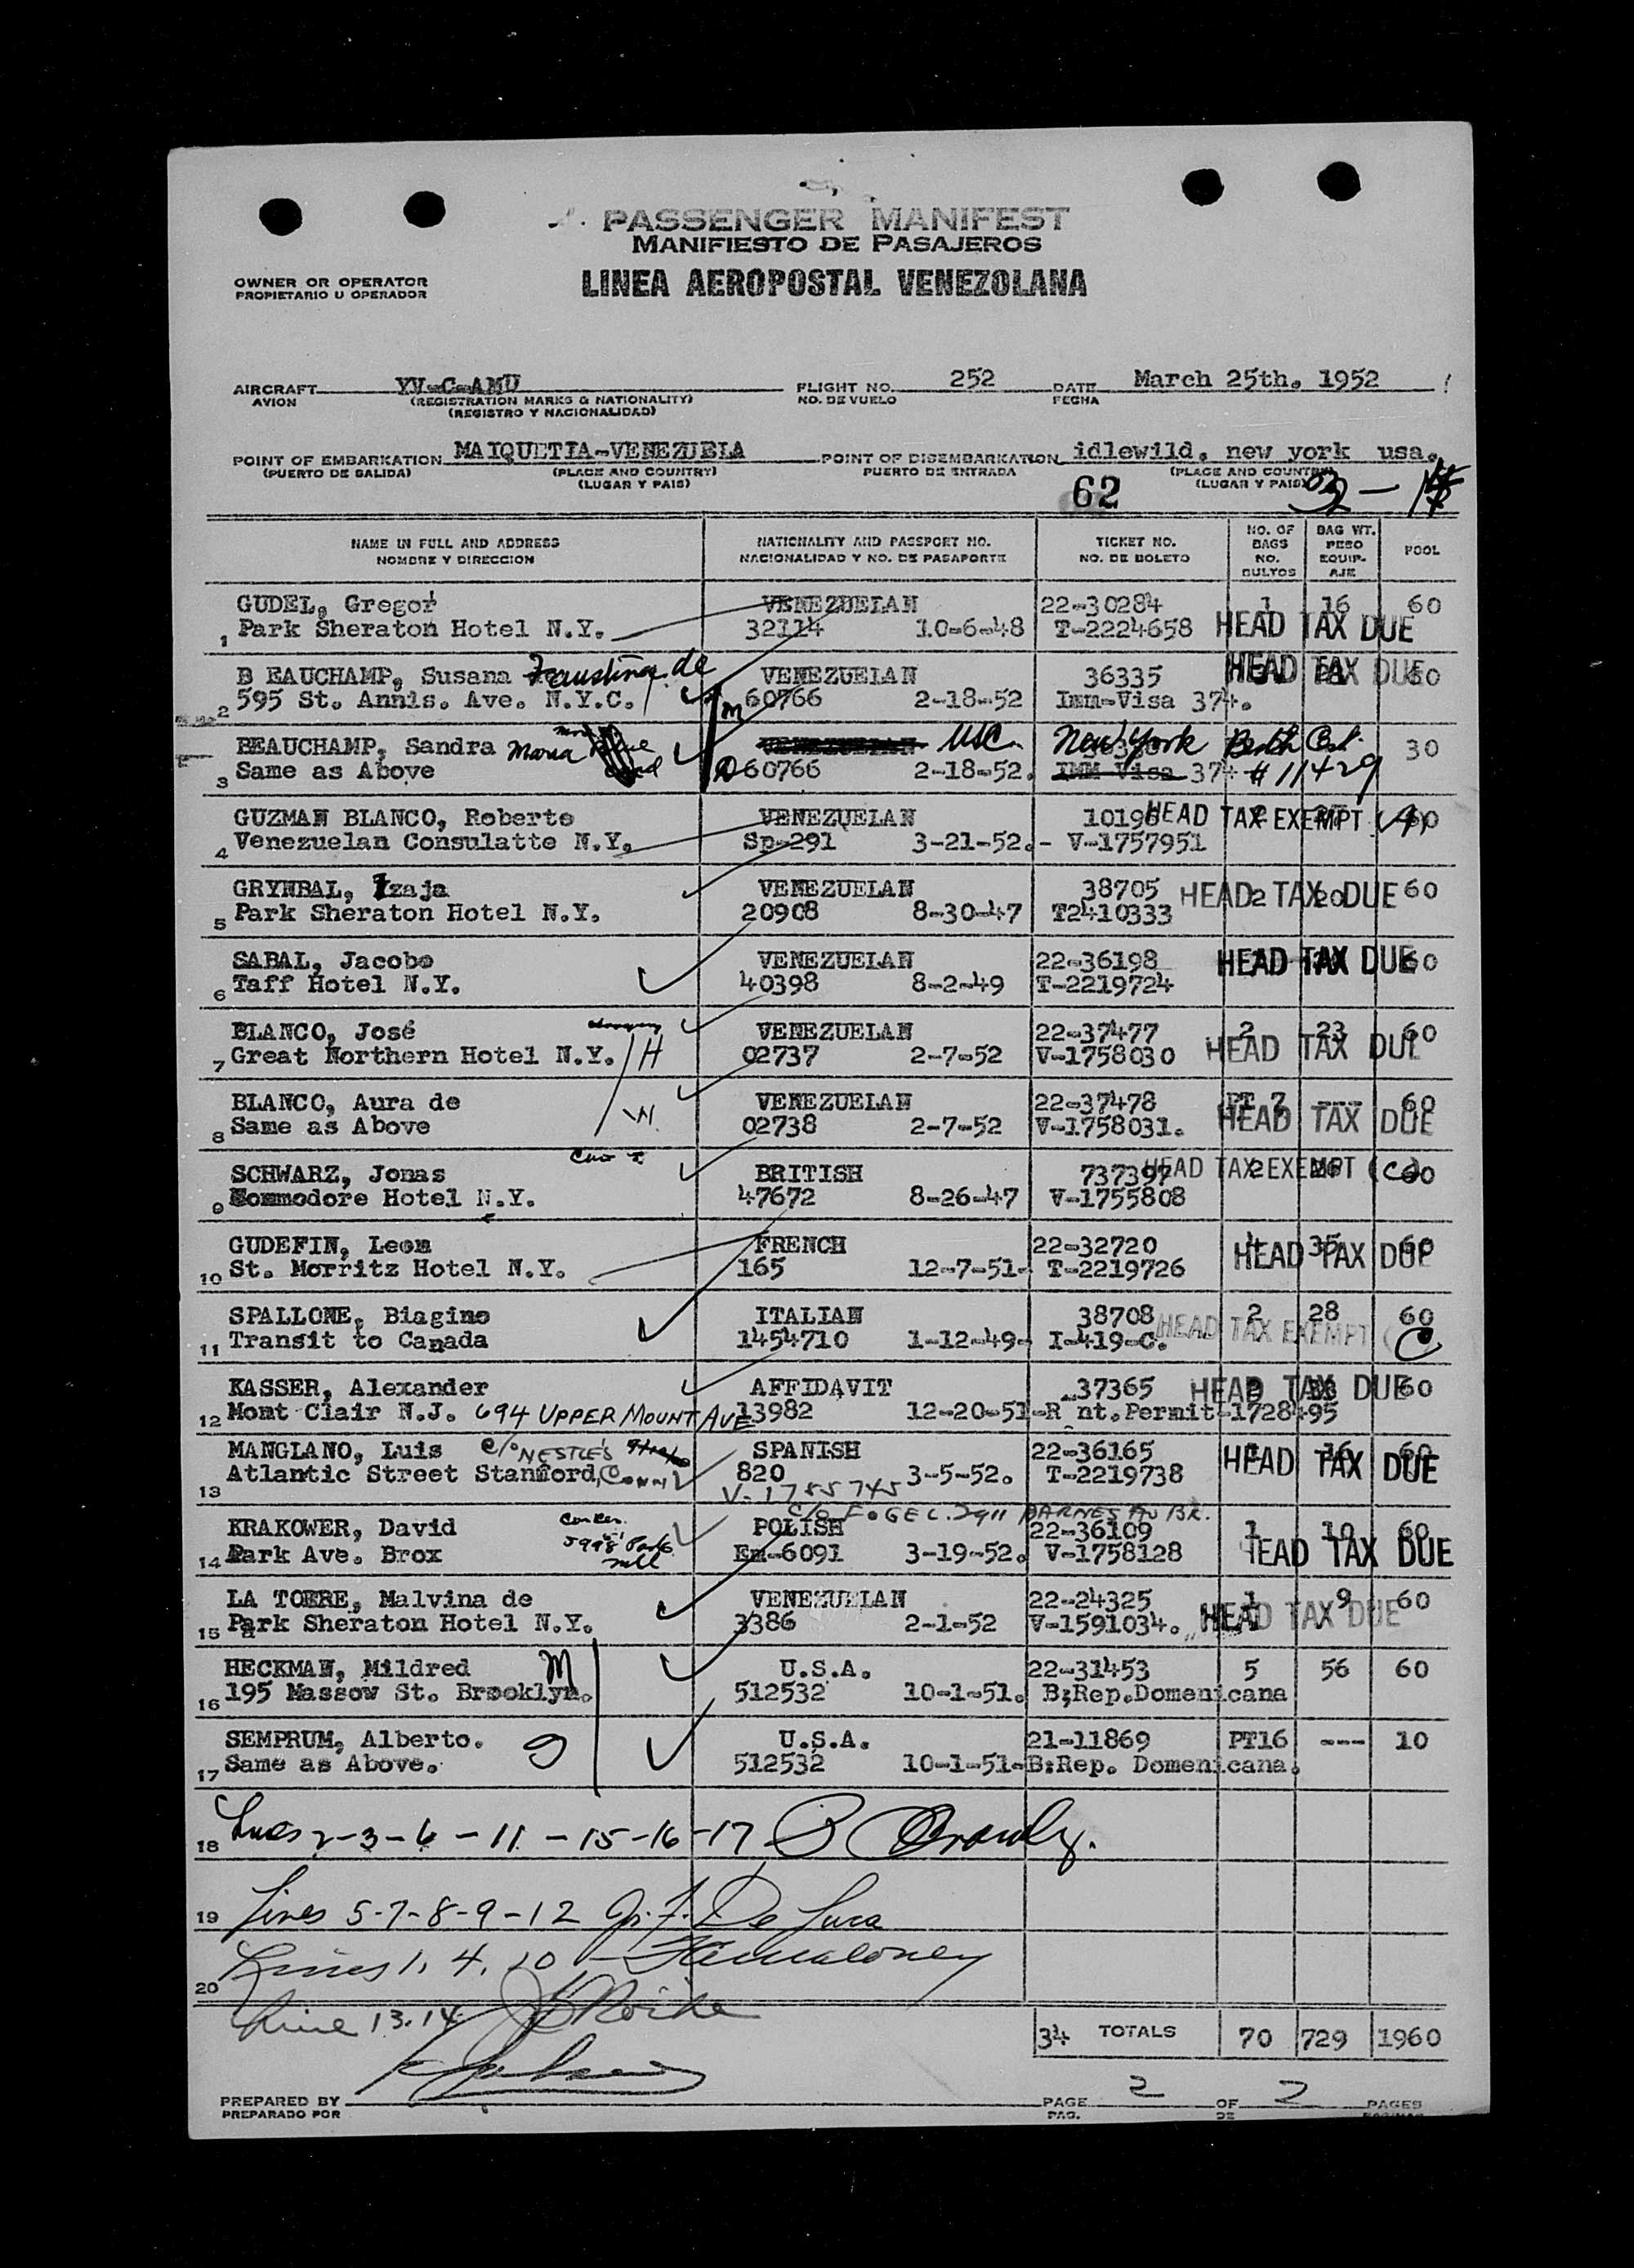 PASSENGER MANIFEST
MANIFIESTO DE PASAJEROS
OWNER OR OPERATOR
PROPIETARIO U OPERADOR
LINEA AEROPOSTAL VENEZOLANA
AIRCRAFT YV-C-AMU FLIGHT NO. 252 DATE March 25th. 1952
AVION (REGISTRATION MARKS & NATIONALITY) NO. DE VUELO FECHA
(REGISTRO Y NACIONALIDAD)
POINT OF EMBARKATION MAIQUETIA-VENEZUELA POINT OF DISEMBARKATION idlewild. new york usa.
(PUERTO DE SALIDA) (PLACE AND COUNTRY) PUERTO DE ENTRADA (PLACE AND COUNTRY)
(LUGAR Y PAIS) (LUGAR Y PAIS)
62
NAME IN FULL AND ADDRESS NATIONALITY AND PASSPORT NO. TICKET NO. NO. OF BAGS BAG WT. POOL
NOMBRE Y DIRECCION NACIONALIDAD Y NO. DE PASAPORTE NO. DE BOLETO NO. BULTOS PESO EQUIP-AJE
GUDEL, Gregor VENEZUELAN 22-30284 1 16 60
1 Park Sheraton Hotel N.Y. 32114 10-6-48 T-2224658 HEAD TAX DUE
B EAUCHAMP, Susana Faustina de VENEZUELAN 36335 HEAD TAX DUE 60
2 595 St. Annis. Ave. N.Y.C. M 60766 2-18-52 Imm-Visa 374.
BEAUCHAMP, Sandra Maria VENEZUELAN USC. New York Birth Cert. 30
3 Same as Above D 60766 2-18-52. IMM Visa 374 # 11429
GUZMAN BLANCO, Roberto VENEZUELAN 10196 HEAD TAX EXEMPT (A) 60
4 Venezuelan Consulatte N.Y. Sp-291 3-21-52.- V-1757951
GRYNBAL, Izaja VENEZUELAN 38705 HEAD TAX DUE 2 20 60
5 Park Sheraton Hotel N.Y. 20908 8-30-47 T2410333
SABAL, Jacobo VENEZUELAN 22-36198 HEAD TAX DUE 60
6 Taff Hotel N.Y. 40398 8-2-49 T-2219724
BLANCO, José VENEZUELAN 22-37477 2 23 60
7 Great Northern Hotel N.Y. H 02737 2-7-52 V-1758030 HEAD TAX DUE
BLANCO, Aura de VENEZUELAN 22-37478 PT 7 --- 60
8 Same as Above W. 02738 2-7-52 V-1758031. HEAD TAX DUE
SCHWARZ, Jonas BRITISH 737397 HEAD TAX EXEMPT (C) 2 26 60
9 Commodore Hotel N.Y. 47672 8-26-47 V-1755808
GUDEFIN, Leon FRENCH 22-32720 4 35 60
10 St. Morritz Hotel N.Y. 165 12-7-51- T-2219726 HEAD TAX DUE
SPALLONE, Biagino ITALIAN 38708 2 28 60
11 Transit to Canada 1454710 1-12-49- I-419-C. HEAD TAX EXEMPT (C
KASSER, Alexander AFFIDAVIT 37365 HEAD TAX DUE 60
12 Mont Clair N.J. 694 UPPER MOUNT AVE 13982 12-20-51-R nt.Permit-1728495
MANGLANO, Luis c/o NESTLE'S SPANISH 22-36165 16 60
13 Atlantic Street Stanmford, Conn 820 3-5-52. T-2219738 HEAD TAX DUE
V-1755745
c/o FOGEL. 2911 BARNES AV BX.
KRAKOWER, David POLISH 22-36109 1 10 60
14 Park Ave. Brox Em-6091 3-19-52. V-1758128 HEAD TAX DUE
LA TORRE, Malvina de VENEZUELAN 22-24325 1 9 60
15 Park Sheraton Hotel N.Y. 3386 2-1-52 V-1591034. HEAD TAX DUE
HECKMAN, Mildred M U.S.A. 22-31453 5 56 60
16 195 Massow St. Brooklyn. 512532 10-1-51. B;Rep.Domenicana
SEMPRUM, Alberto. S U.S.A. 21-11869 PT16 --- 10
17 Same as Above. 512532 10-1-51-B:Rep. Domenicana.
18 Lines 2-3-6-11-15-16-17
19 Lines 5-7-8-9-12 De Luca
20 Lines 1, 4, 10 - Maloney
Line 13.14
34 TOTALS 70 729 1960
PREPARED BY PAGE 2 OF 2 PAGES
PREPARADO POR PAG. DE PAGINAS